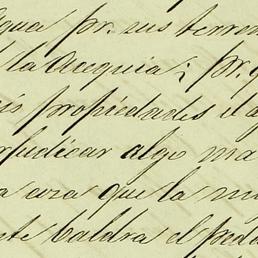 Agua pr. sus terren
la Acequia; pr. q
propiedades el a
rjudicar algo ma
a cosa que la m
nte baldra el peda